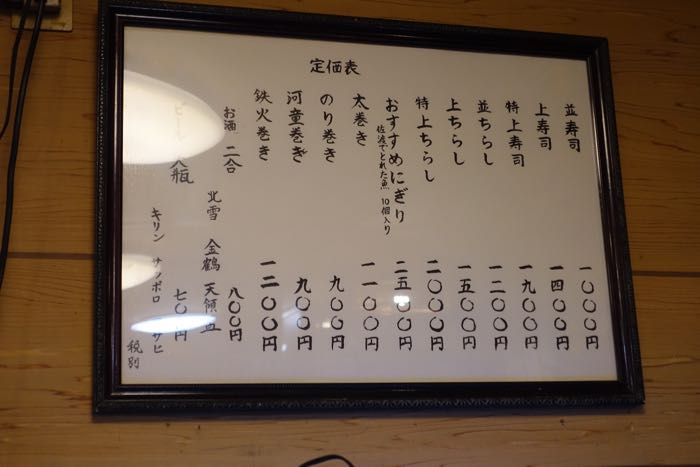 定価表
並寿司 一〇〇〇円
上寿司 一四〇〇円
特上寿司 一九〇〇円
並ちらし 一二〇〇円
上ちらし 一五〇〇円
特上ちらし 二〇〇〇円
おすすめにぎり 二五〇〇円
佐渡でとれた魚 10個入り
太巻き 一一〇〇円
のり巻き 九〇〇円
河童巻き 九〇〇円
鉄火巻き 一二〇〇円
お酒 二合 八〇〇円
北雪 金鶴 天領盃
ビール 大瓶 七〇〇円
キリン サッポロ アサヒ
税別